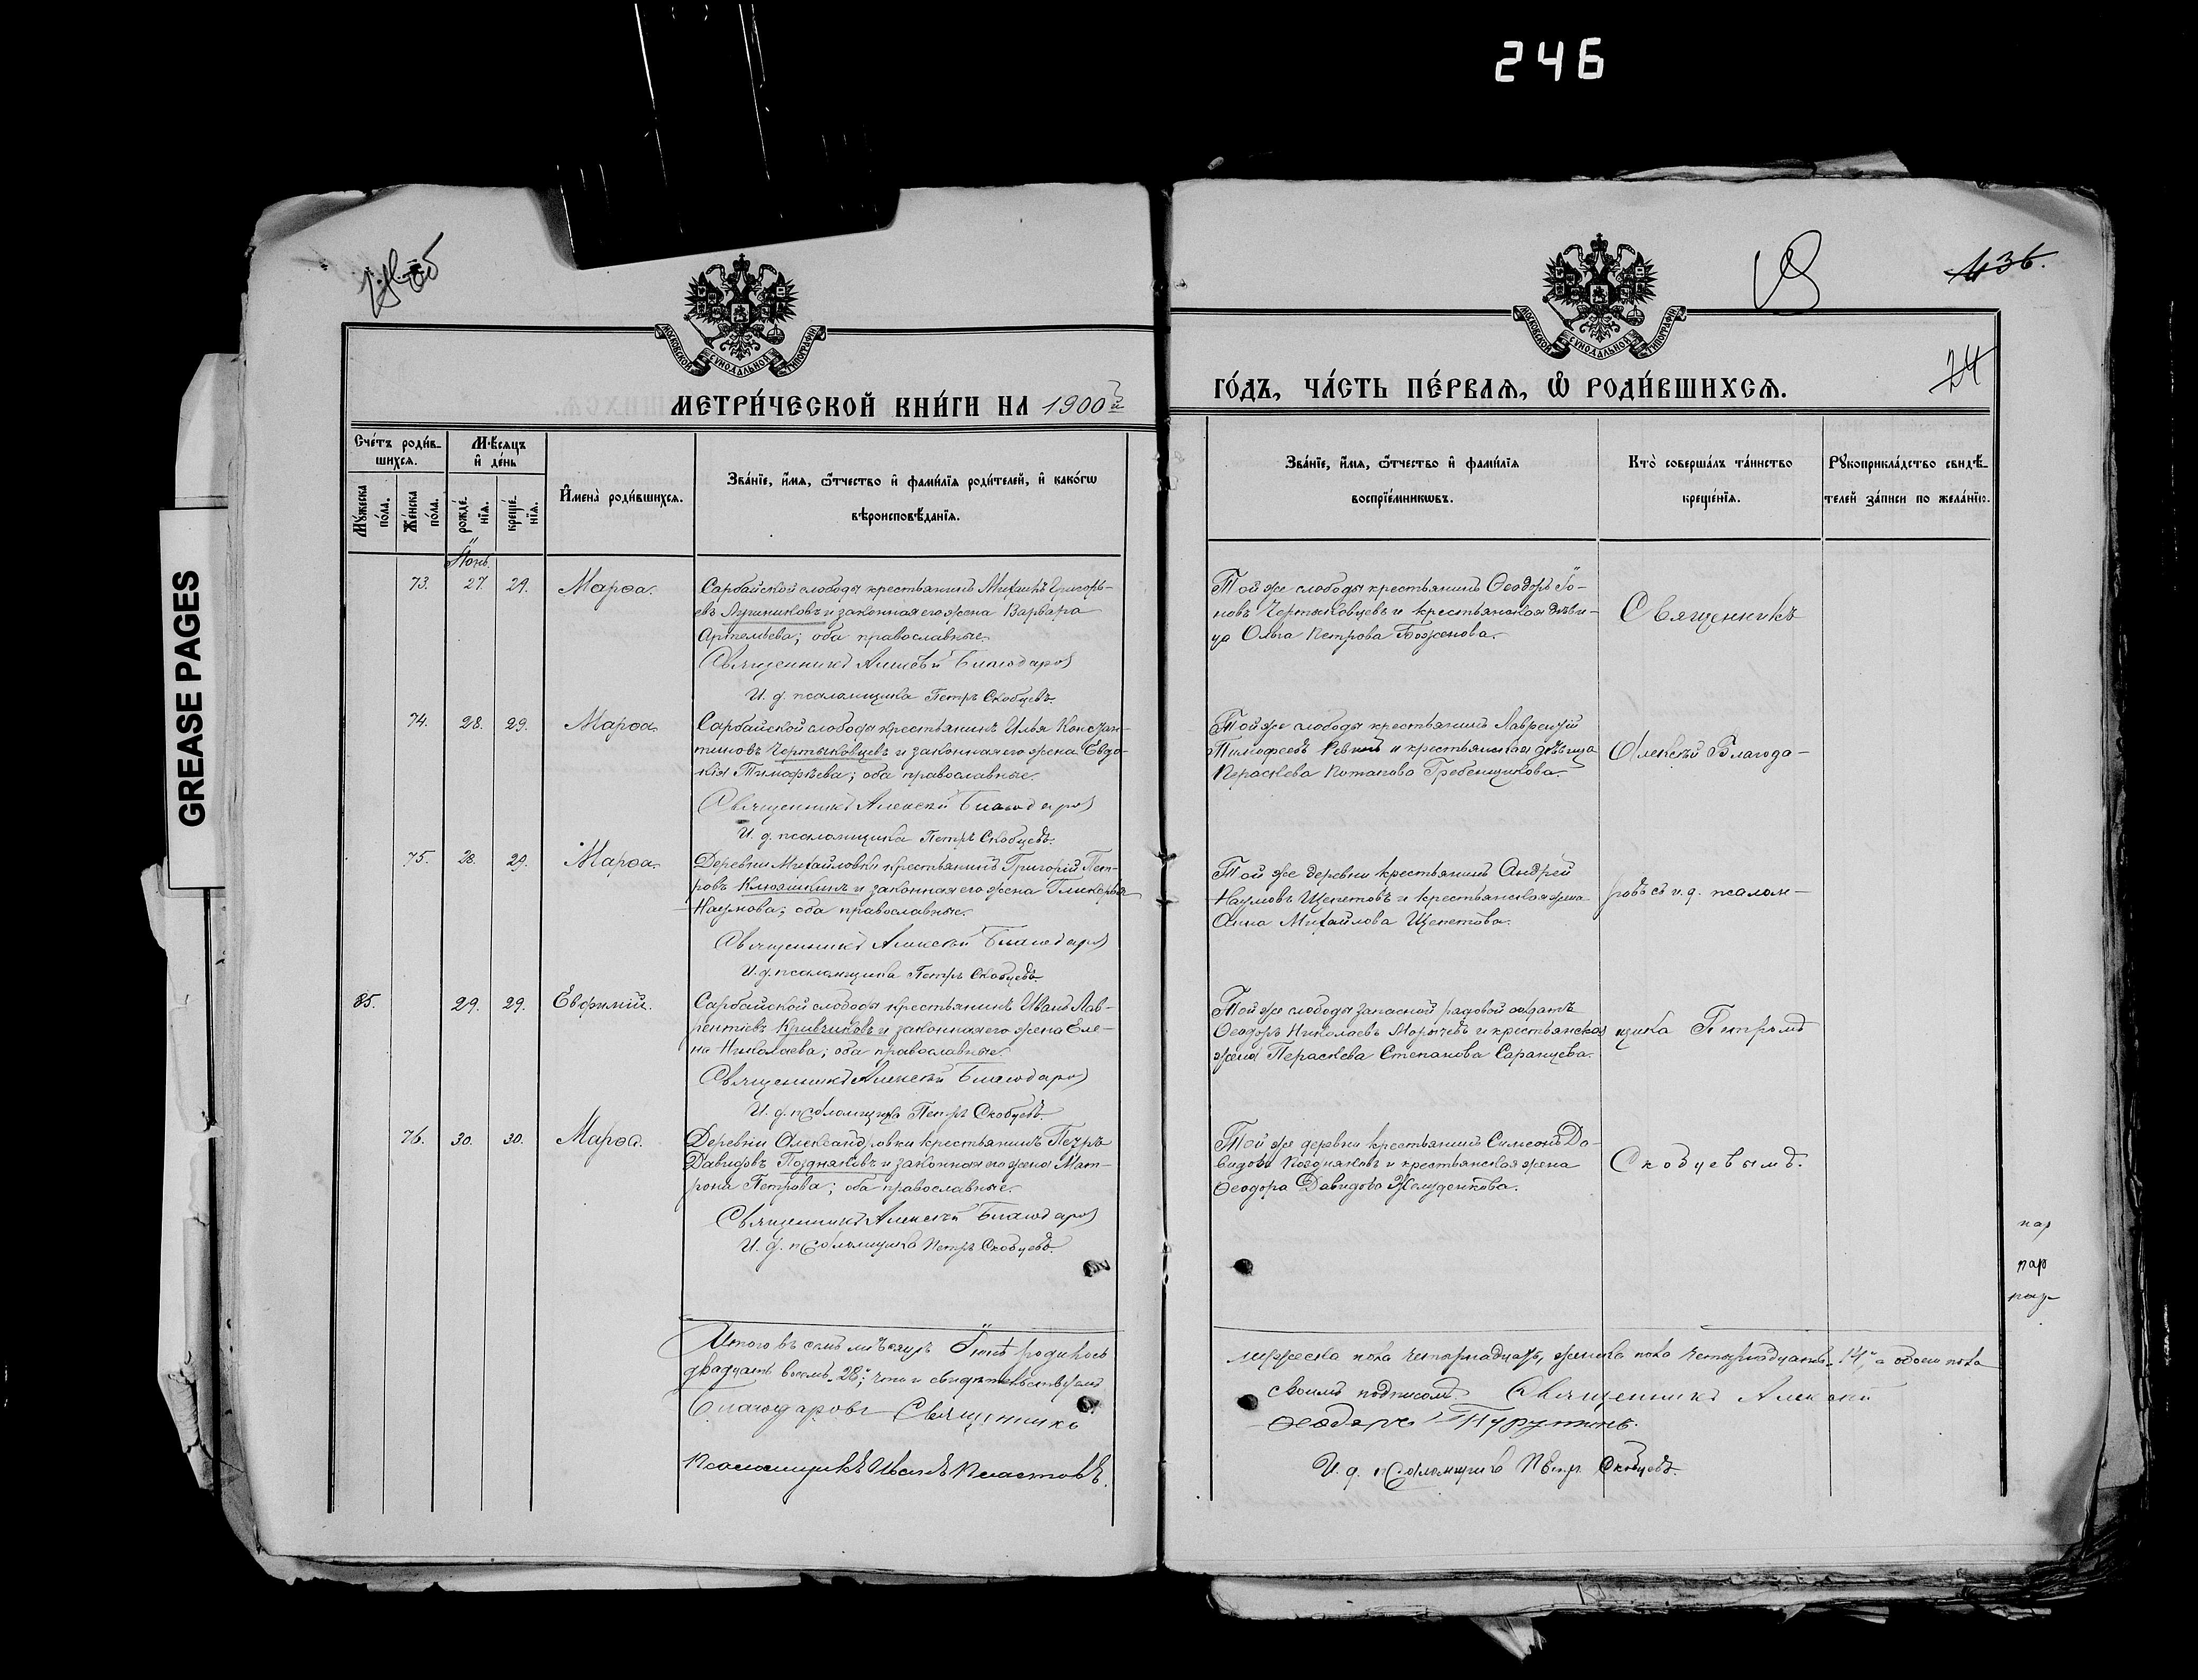 246
GREASE PAGES
436.
24
МОСКОВСКОЙ СѴНОДАЛЬНОЙ ТИПОГРАФІИ
МОСКОВСКОЙ СѴНОДАЛЬНОЙ ТИПОГРАФІИ
МЕТРИ́ЧЕСКОЙ КНИ́ГИ НА 1900й
ГО́ДЪ, ЧА́СТЬ ПЕ́РВАѦ, Ѡ҆ РОДИ́ВШИХСѦ.
Сче́тъ роди́в-
шихсѧ.
Мѣ́сѧцъ
и҆ де́нь
Мꙋ́жеска по́ла.
Же́нска по́ла.
рожде́-нїѧ.
креще́-нїѧ.
И҆мена̀ роди́вшихсѧ.
Зва́нїе, и҆́мѧ, ѻ҆́тчество и҆ фами́лїѧ роди́телей, и҆ како́гѡ
вѣроисповѣ́данїѧ.
Зва́нїе, и҆́мѧ, ѻ҆́тчество и҆ фами́лїѧ
воспрїе́мникѡвъ.
Кто̀ соверша́лъ та́инство
креще́нїѧ.
Рꙋкоприкла́дство свидѣ́-
телей за́писи по жела́нїю.
Іюнь.
73. 27. 29. Марѳа.
Сарбайской слободы крестьянинъ Михаилъ Григорь-
евъ и законная его жена Варвара
Артемьева; оба православные.
Священникъ Алексѣй Благодаров
И. д. псаломщика Петръ Скобцевъ.
Той же слободы крестьянинъ Ѳеодоръ Іо-
новъ Чертыковцевъ и крестьянская дѣви-
ца Ольга Петрова Боженова.
Священникъ
74. 28. 29. Марѳа.
Сарбайской слободы крестьянинъ Илья Констан-
тиновъ Чертыковцевъ и законная его жена Евдо-
кія Тимофѣева; оба православные.
Священникъ Алексѣй Благодаров
И. д. псаломщика Петръ Скобцевъ.
Той же слободы крестьянинъ Лаврентій
Тимофеевъ и крестьянская дѣвица
Параскева Потапова Гребенщикова.
Алексѣй Благода-
75. 28. 29. Марѳа.
Деревни Михайловки крестьянинъ Григорій Пет-
ровъ Клюзикинъ и законная его жена Гликерія
Наумова; оба православные.
Священникъ Алексѣй Благодаров
И. д. псаломщика Петръ Скобцевъ.
Той же деревни крестьянинъ Андрей
Наумовъ Щепетовъ и крестьянская жена
Анна Михайлова Щепетова.
ровъ съ и. д. псалом-
85. 29. 29. Евфимій.
Сарбайской слободы крестьянинъ Иванъ Лав-
рентіевъ Кривчиковъ и законная его жена Еле-
на Николаева; оба православные.
Священникъ Алексѣй Благодаров
И. д. псаломщика Петръ Скобцевъ.
Той же слободы запасной рядовой солдатъ
Ѳеодоръ Николаевъ Марычевъ и крестьянская
жена Параскева Степанова Саранцева.
щика Петромъ
76. 30. 30. Марѳа.
Деревни Александровки крестьянинъ Петръ
Давидовъ Поздняковъ и законная его жена Мат-
рона Петрова; оба православные.
Священникъ Алексѣй Благодаров
И. д. псаломщика Петръ Скобцевъ.
Той же деревни крестьянинъ Симеонъ Да-
видовъ Поздняковъ и крестьянская жена
Ѳеодора Давидова Желуденкова.
Скобцевымъ.
Итого въ семъ мѣсяцѣ Іюнѣ родилось
мужеска пола четырнадцать, женска пола четырнадцать „14,“ а обоего пола
двадцать восемь „28“; что и свидѣтельствуемъ
своимъ подписомъ Священникъ Алексѣй
Благодаровъ Священникъ
Ѳеодоръ Пурутинъ.
Псаломщикъ Иванъ Пластовъ.
И. д. псаломщика Петръ Скобцевъ.